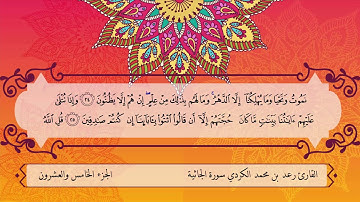 نَمُوتُ وَنَحْيَا وَمَا يُهْلِكُنَآ إِلَّا ٱلدَّهْرُ ۚ وَمَا لَهُم بِذَٰلِكَ مِنْ عِلْمٍ ۖ إِنْ هُمْ إِلَّا يَظُنُّونَ ٢٤ وَإِذَا تُتْلَىٰ
عَلَيْهِمْ ءَايَـٰتُنَا بَيِّنَـٰتٍ مَّا كَانَ حُجَّتَهُمْ إِلَّآ أَن قَالُوا۟ ٱئْتُوا۟ بِـَٔابَآئِنَآ إِن كُنتُمْ صَـٰدِقِينَ ٢٥ قُلِ ٱللَّهُ
القارئ رعد بن محمد الكردي سورة الجاثية
الجزء الخامس والعشرون